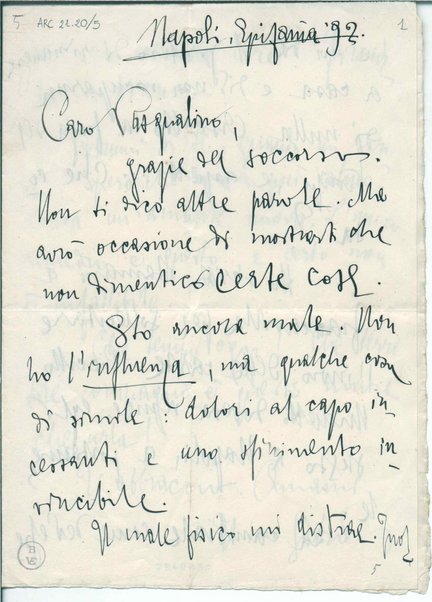 5 ARC 21.20/5 1
Napoli, Epifania '92.
Caro Pasqualino,
grazie del soccorso.
Non ti dico altre parole. Ma
avrò occasione di mostrarti che
non dimentico certe cose.
Sto ancora male. Non
ho l'influenza, ma qualche cosa
di simile: dolori al capo in-
cessanti e uno sfinimento in-
vincibile.
Il male fisico mi distrae.
5